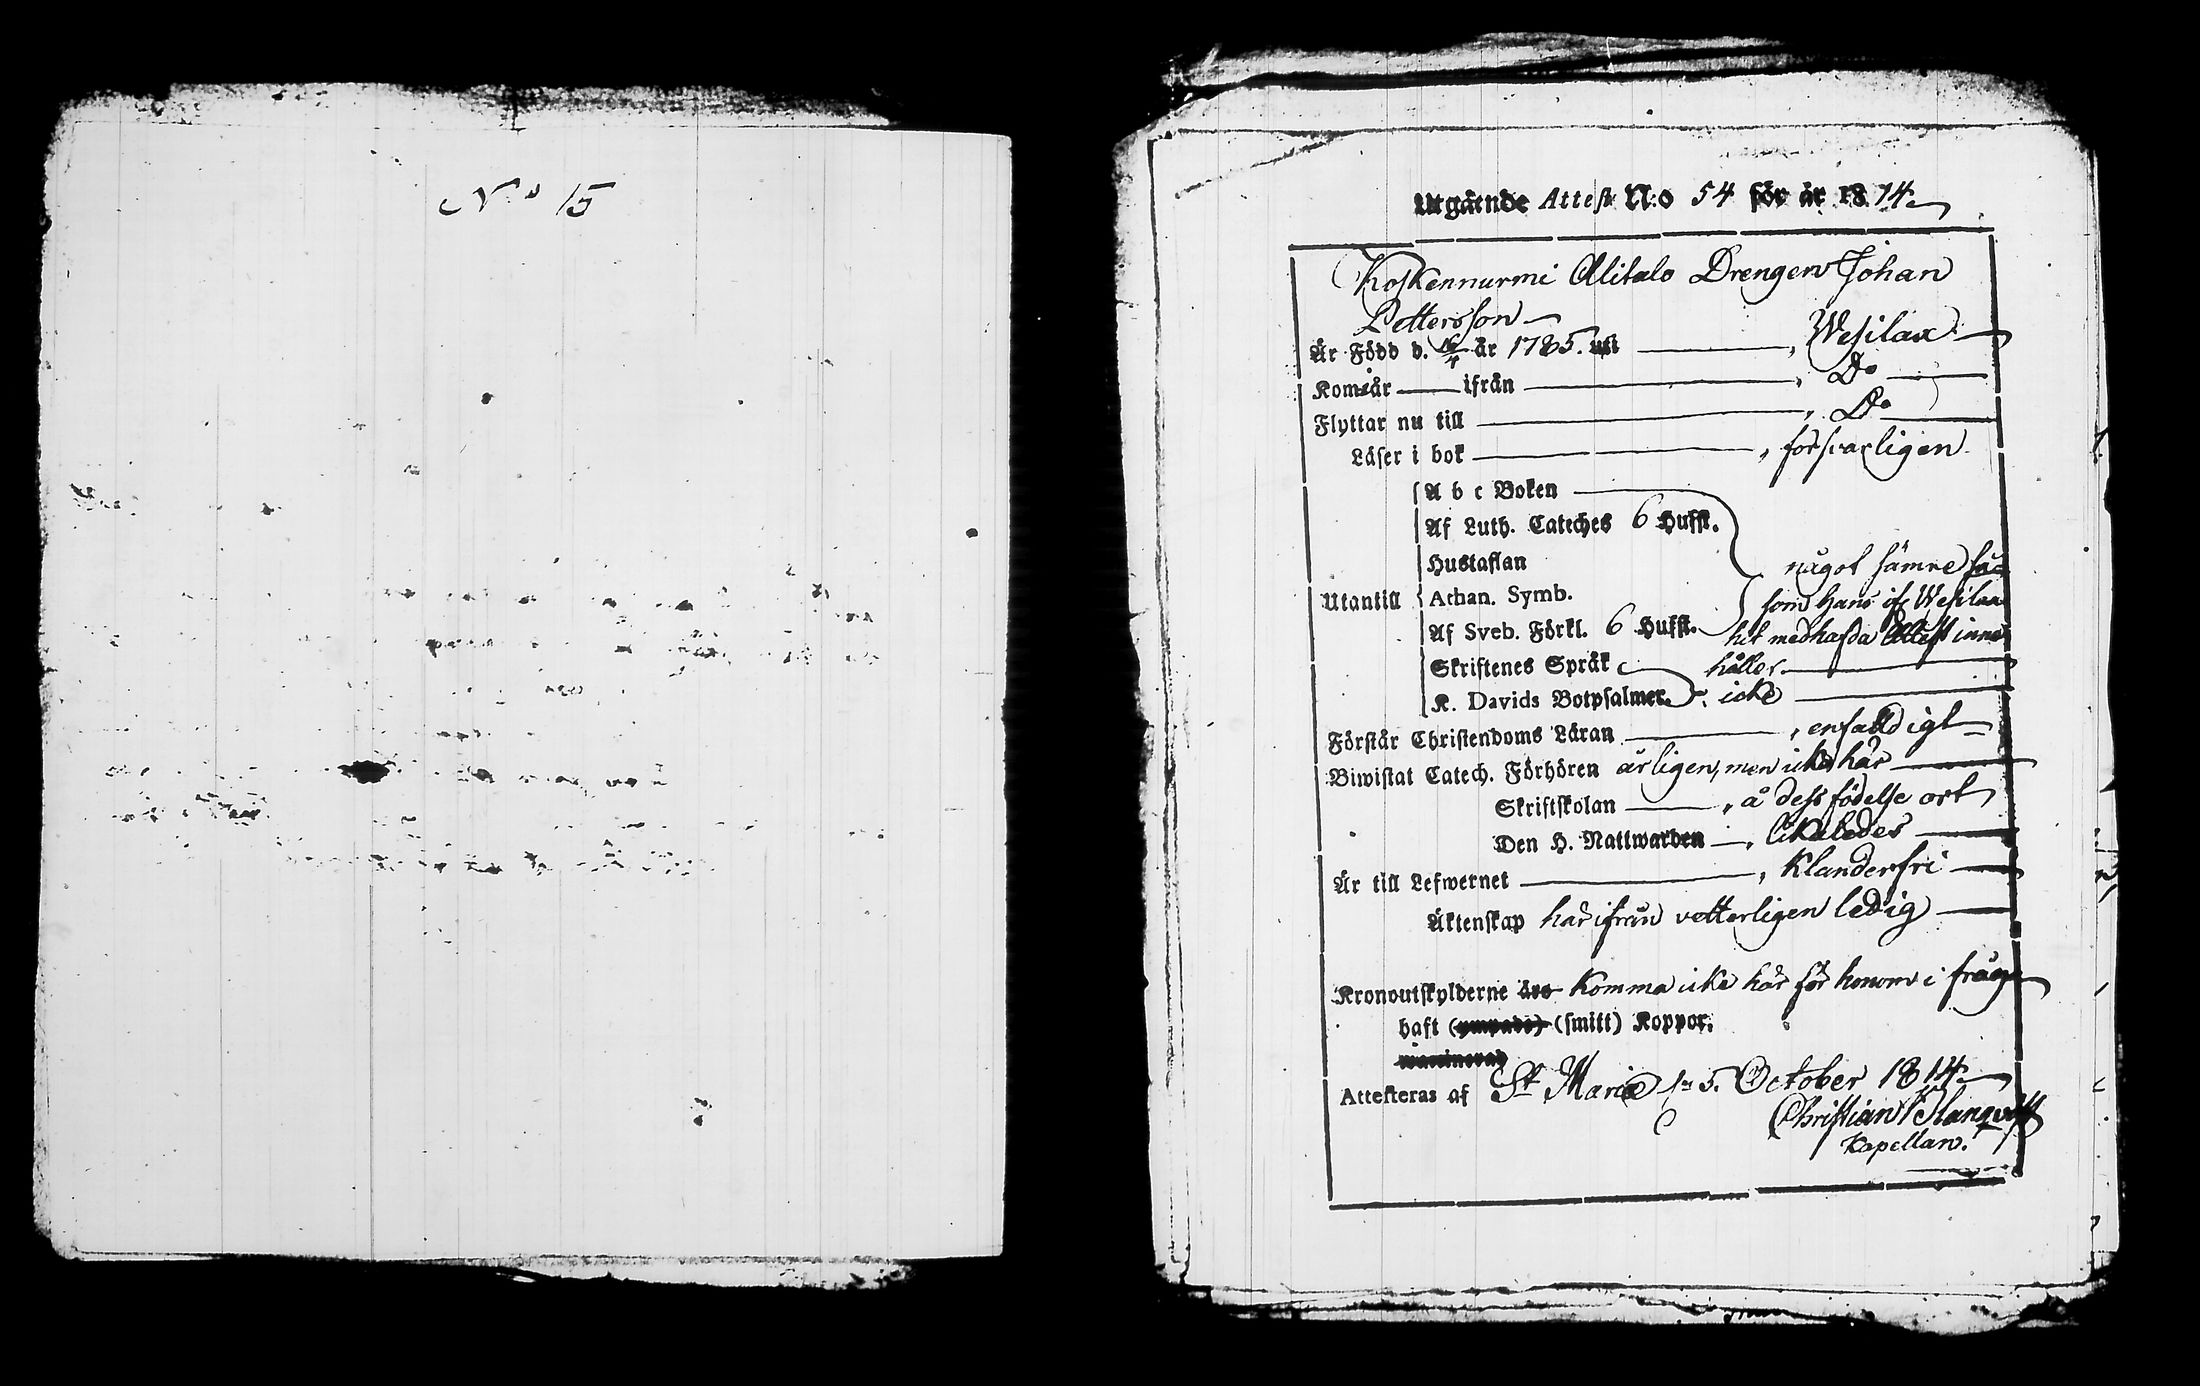 No 15
Utgående Attest N:o 54 för år 1814.
Koskennurmi Alitalo Drengen Johan
Pettersson
Är Född d. 16/4 år 1785. uti Wesilax
Kom år ifrån Do
Flyttar nu till Do
Läser i bok försvarligen
A b c Boken
Af Luth. Cateches 6 Hufst.
Hustaflan något sämre
Utantill Athan. Symb. som hans ifr Wesilax
Af Sveb. Förkl. 6 Hufst. hit medhafda Attest inne
Skriftenes Språk håller
K. Davids Botpsalmer icke
Förstår Christendoms Läran enfalldigt
Biwistat Catech. Förhören årligen, men icke här
Skriftskolan å dess födelse ort
Den H. Nattwarden likaledes
Är till Lefwernet Klanderfri
Äktenskap härifrån vetterligen ledig
Kronoutskylderne äro Komma icke här för honom i fråga
haft (ympade) (smitt) Koppor.
Attesteras af St Mariæ 5. October 1814.
Christian
Kapellan.